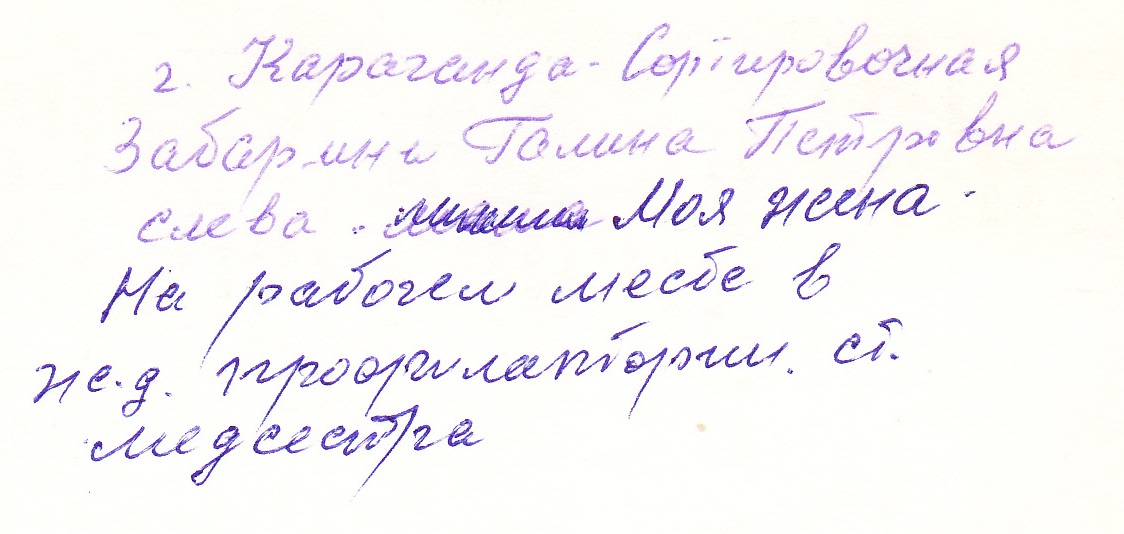 г. Караганда-Сортировочная
Галина Петровна
слева. Моя жена.
На рабочем месте в
ж.д. профилактории. ст.
медсестра